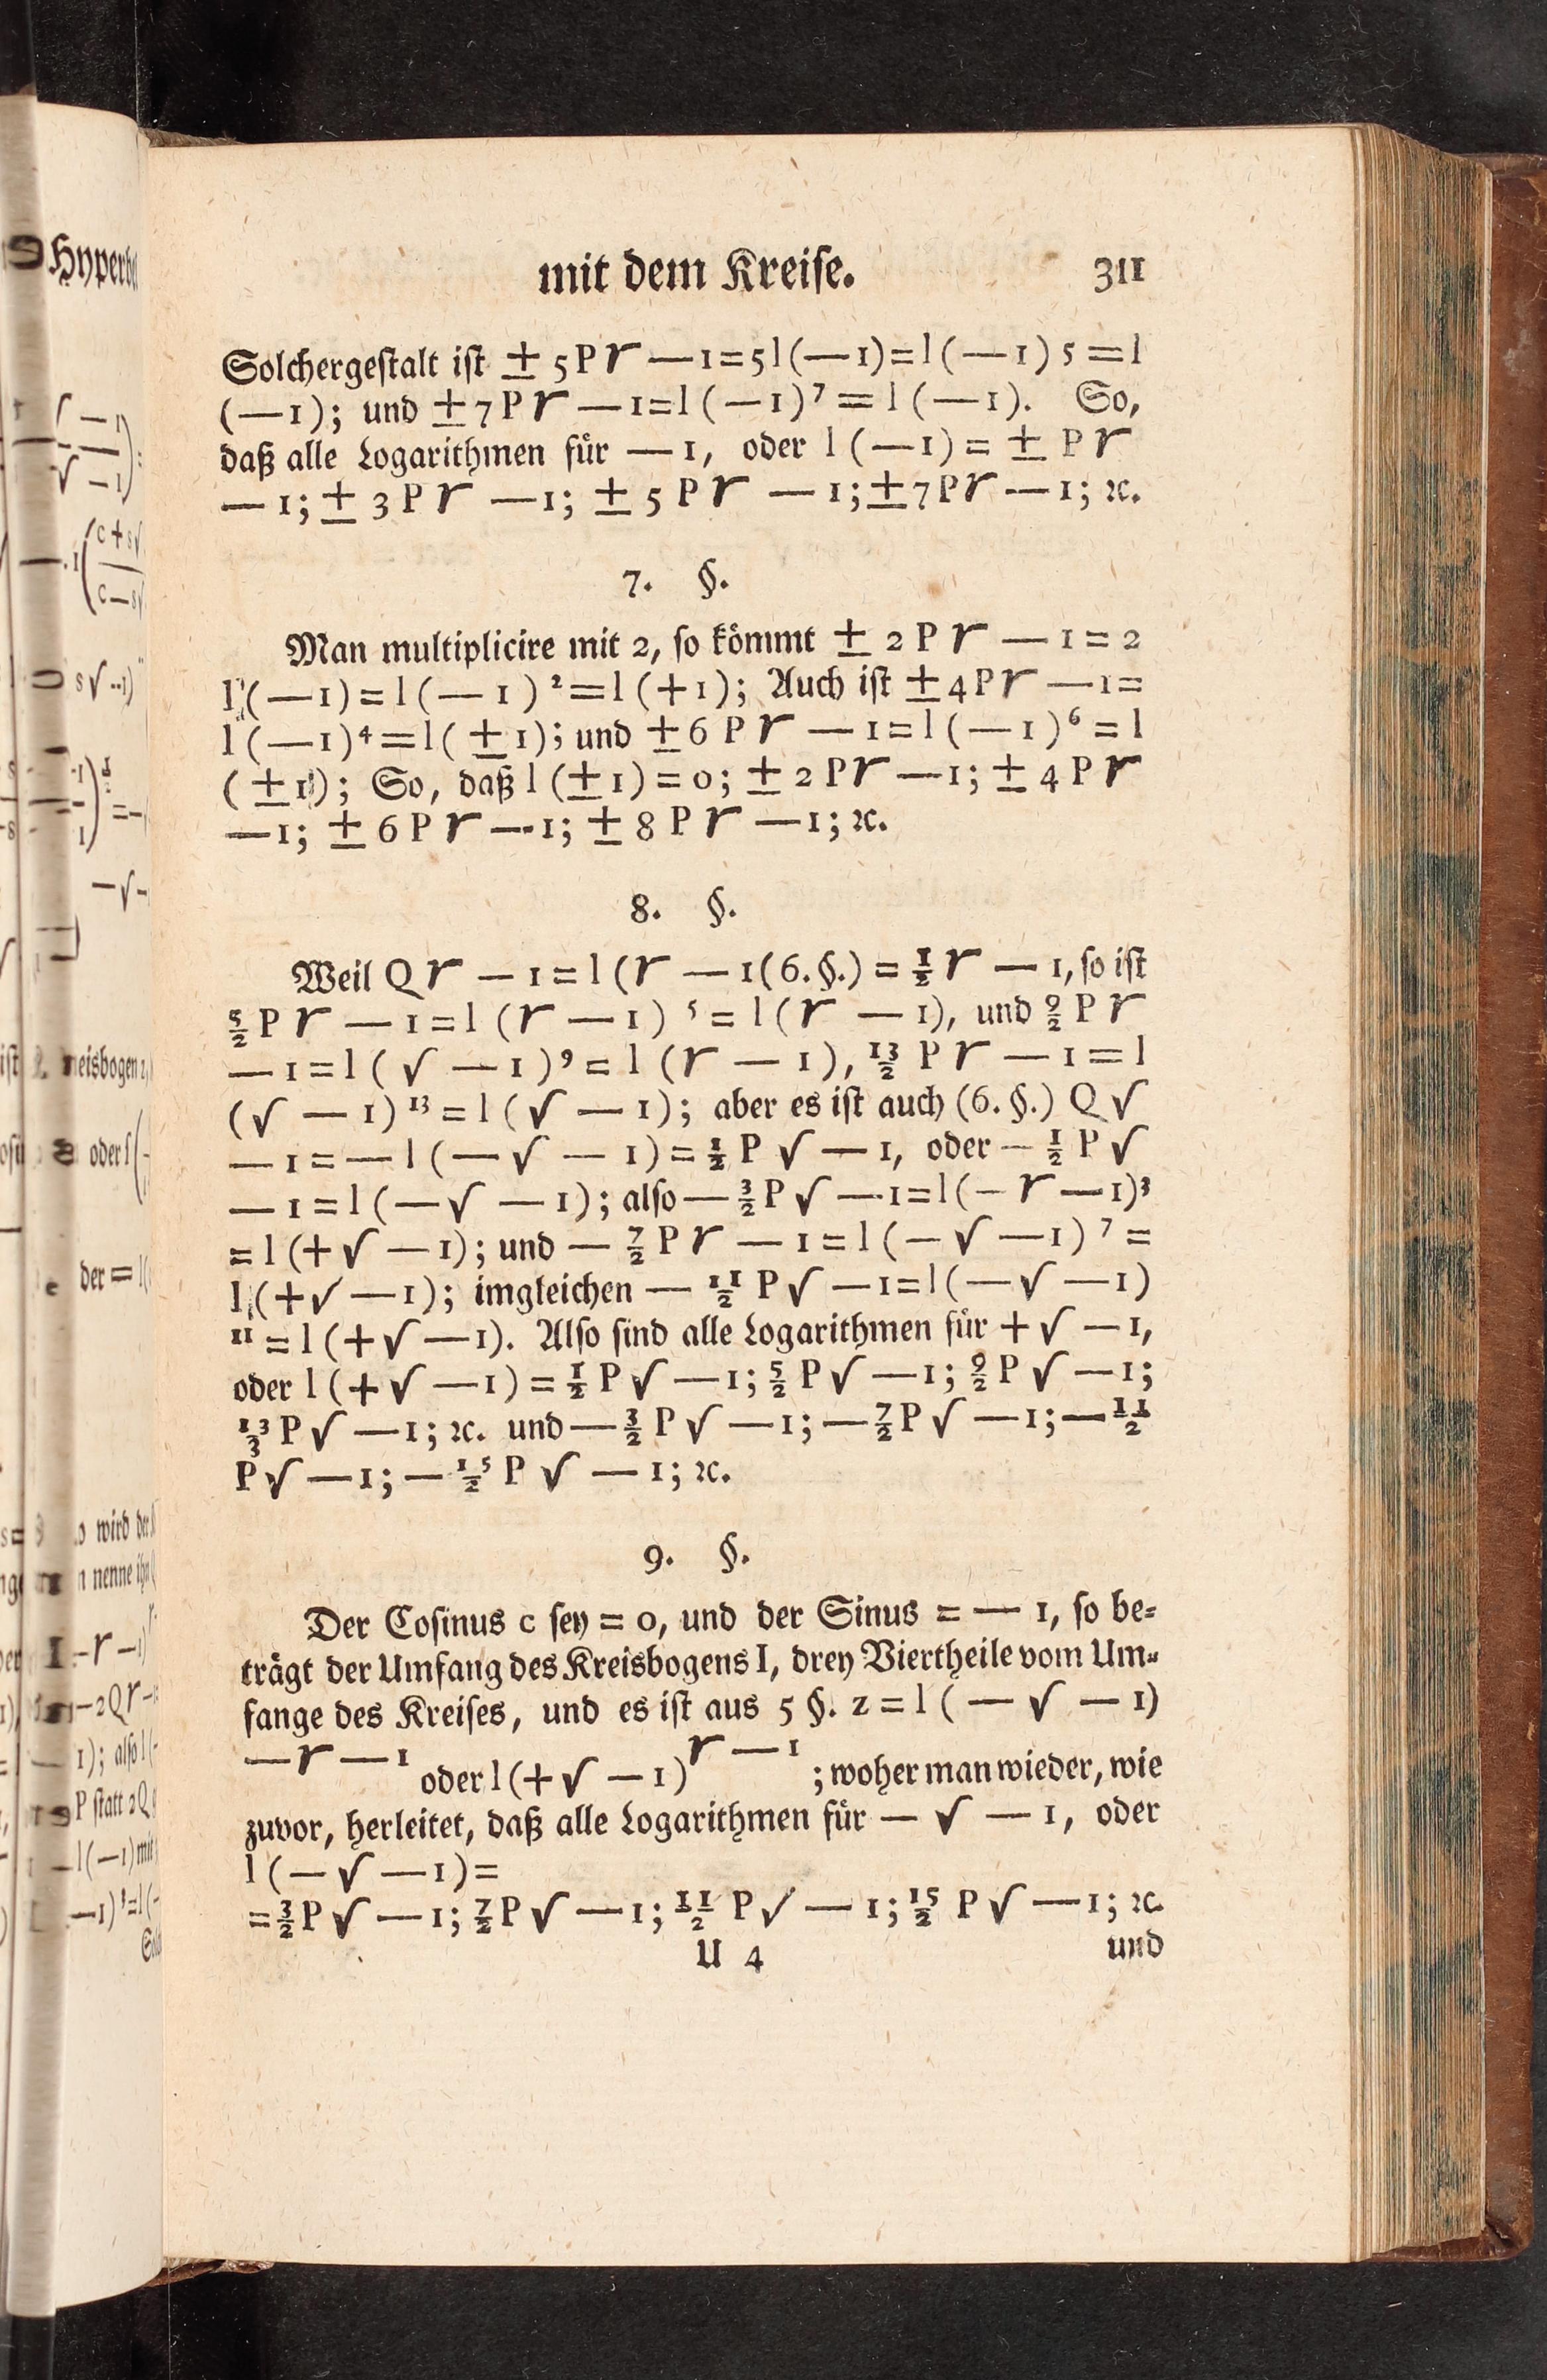 mit dem Kreiſe. 311
Solchergeſtalt iſt ± 5 P √ — 1 = 5 l (— 1) = l (— 1) 5 = l
(— 1); und ± 7 P √ — 1 = l (— 1)⁷ = l (— 1). So,
daß alle Logarithmen für — 1, oder l (— 1) = ± P √
— 1; ± 3 P √ — 1; ± 5 P √ — 1; ± 7 P √ — 1; ꝛc.
7. §.
Man multiplicire mit 2, ſo kömmt ± 2 P √ — 1 = 2
l (— 1) = l (— 1)² = l (+ 1); Auch iſt ± 4 P √ — 1 =
l (— 1)⁴ = l (± 1); und ± 6 P √ — 1 = l (— 1)⁶ = l
(± 1); So, daß l (± 1) = 0; ± 2 P √ — 1; ± 4 P √
— 1; ± 6 P √ — 1; ± 8 P √ — 1; ꝛc.
8. §.
Weil Q √ — 1 = l (√ — 1 (6. §.) = ½ √ — 1, ſo iſt
5/2 P √ — 1 = l (√ — 1) ⁵ = l (√ — 1), und 9/2 P √
— 1 = l (√ — 1)⁹ = l (√ — 1), 13/2 P √ — 1 = l
(√ — 1)¹³ = l (√ — 1); aber es iſt auch (6. §.) Q √
— 1 = — l (— √ — 1) = ½ P √ — 1, oder — ½ P √
— 1 = l (— √ — 1); alſo — 3/2 P √ — 1 = l (— √ — 1)³
= l (+ √ — 1); und — 7/2 P √ — 1 = l (— √ — 1) ⁷ =
l (+ √ — 1); imgleichen — 11/2 P √ — 1 = l (— √ — 1)
¹¹ = l (+ √ — 1). Alſo ſind alle Logarithmen für + √ — 1,
oder l (+ √ — 1) = ½ P √ — 1; 5/2 P √ — 1; 9/2 P √ — 1;
13/3 P √ — 1; ꝛc. und — 3/2 P √ — 1; — 7/2 P √ — 1; — 11/2
P √ — 1; — 15/2 P √ — 1; ꝛc.
9. §.
Der Coſinus c ſey = 0, und der Sinus = — 1, ſo be⸗
trägt der Umfang des Kreisbogens I, drey Viertheile vom Um⸗
fange des Kreiſes, und es iſt aus 5 §. z = l (— √ — 1)
— √ — 1 oder l (+ √ — 1) √ — 1 ; woher man wieder, wie
zuvor, herleitet, daß alle Logarithmen für — √ — 1, oder
l (— √ — 1) =
= 3/2 P √ — 1; 7/2 P √ — 1; 11/2 P √ — 1; 15/2 P √ — 1; ꝛc.
U 4 und